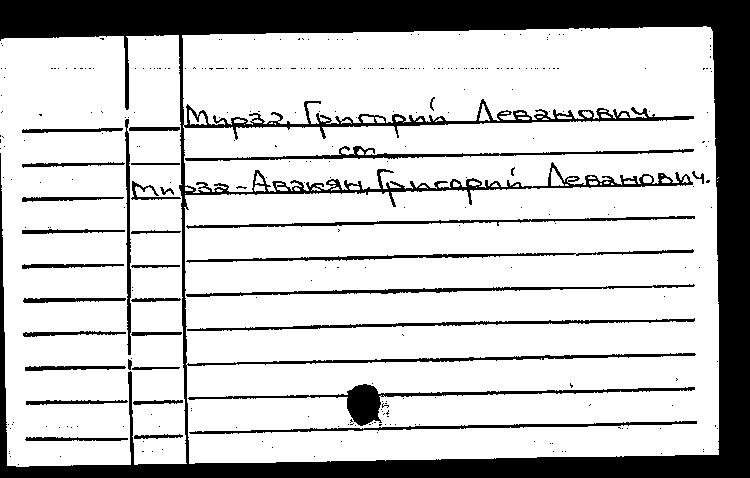 Мирза, Григорий Леванович.
см.
Мирза-Авакян, Григорий Леванович.